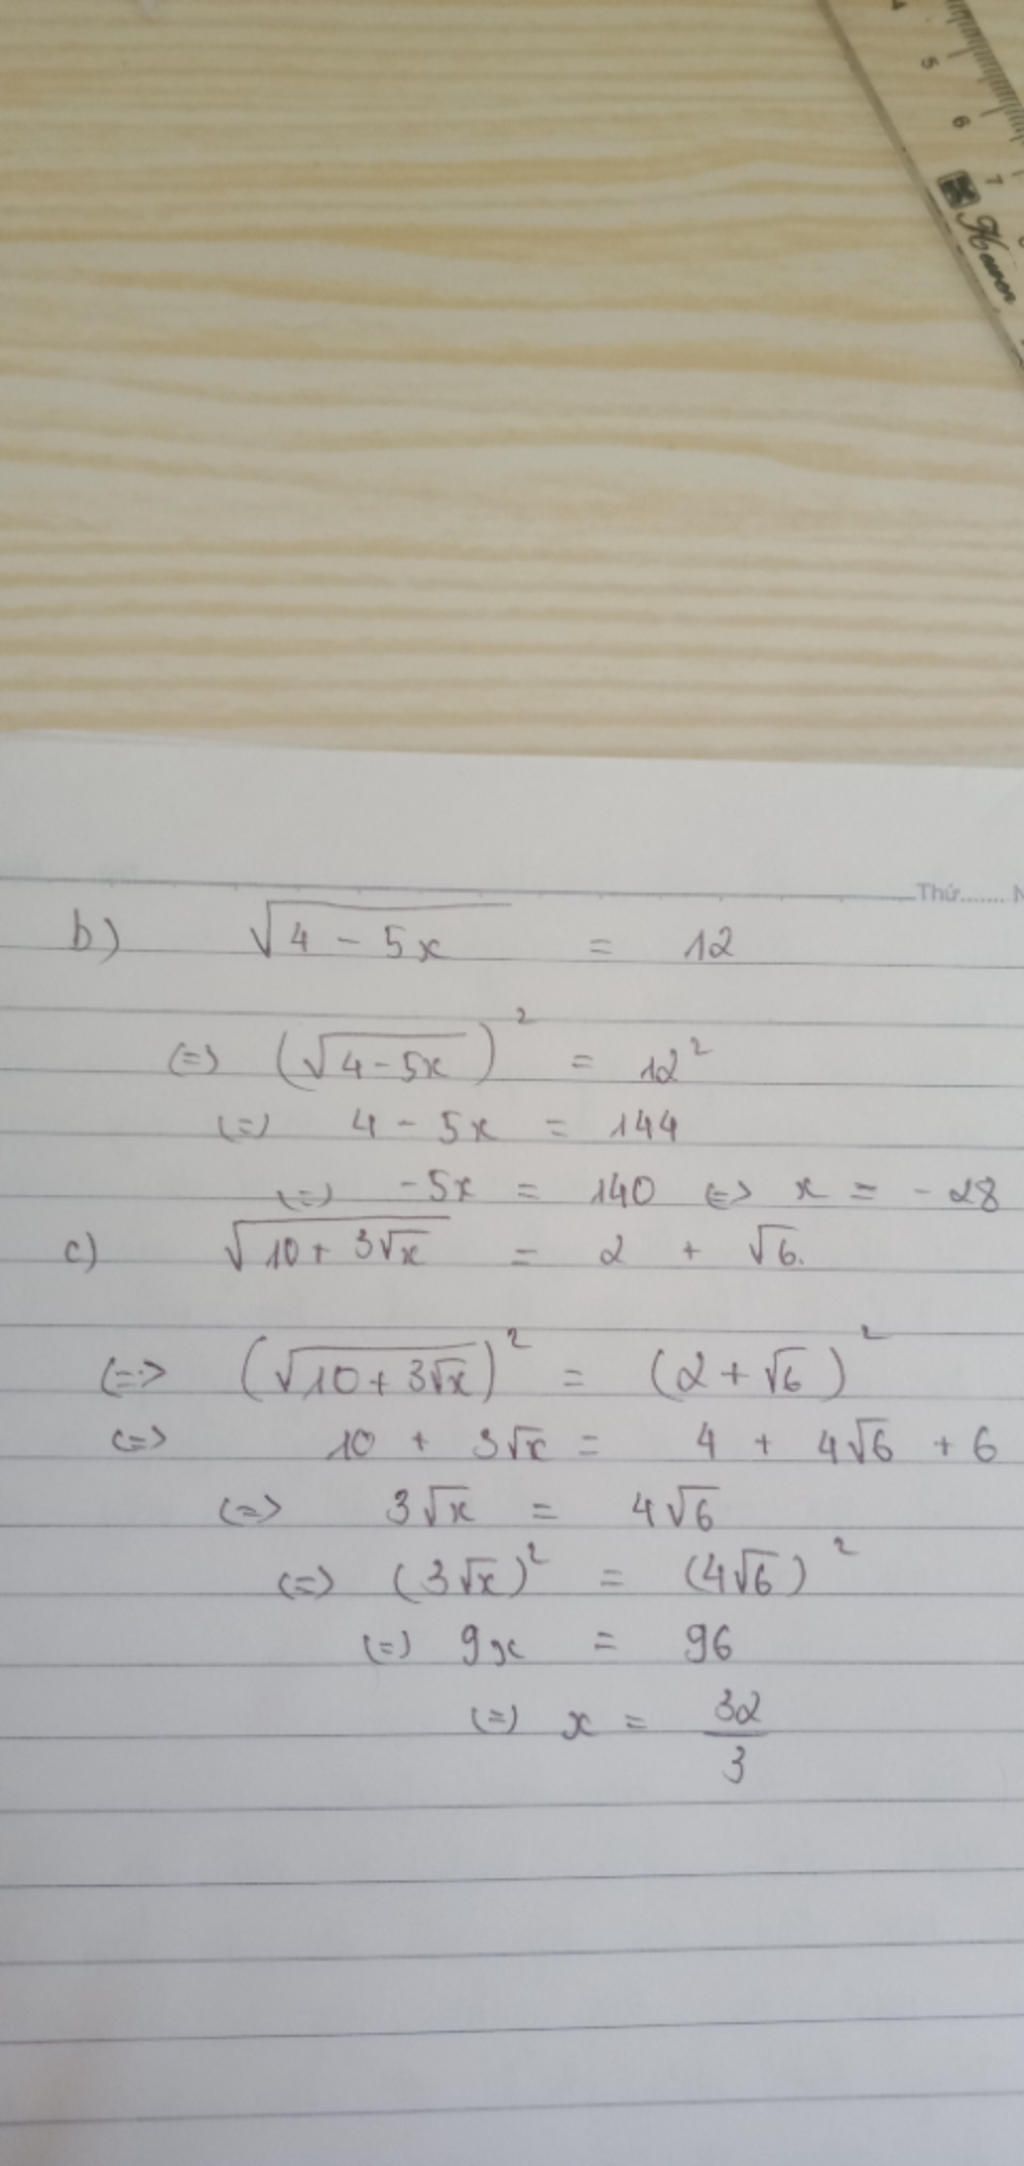 4
5
6
7
Thứ.......
b) √(4 - 5x) = 12
(=) (√(4-5x))² = 12²
(=) 4 - 5x = 144
(=) -5x = 140 (=) x = -28
c) √(10 + 3√x) = 2 + √6.
(=) (√(10+3√x))² = (2 + √6)²
(=) 10 + 3√x = 4 + 4√6 + 6
(=) 3√x = 4√6
(=) (3√x)² = (4√6)²
(=) 9x = 96
(=) x = 32/3